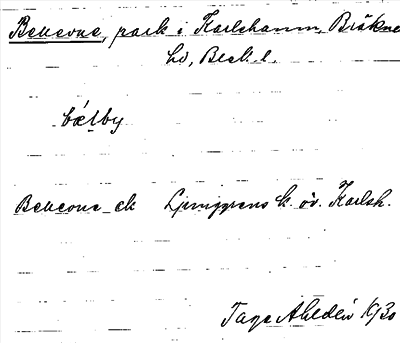 Bellevue, park i Karlshamn, Bräkne
hd, Blek. l.
bǽlby
Bellevue ek Ljunggrens k. öv. Karlsh.
Tage Ahldén 1930